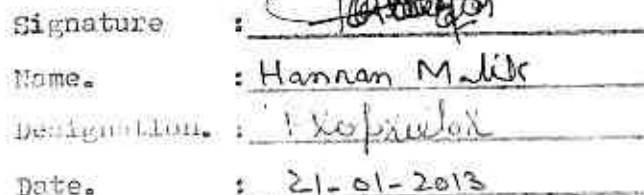 Signature :
Name. : Hannan Malik
Designation. :
Date. : 21-01-2013